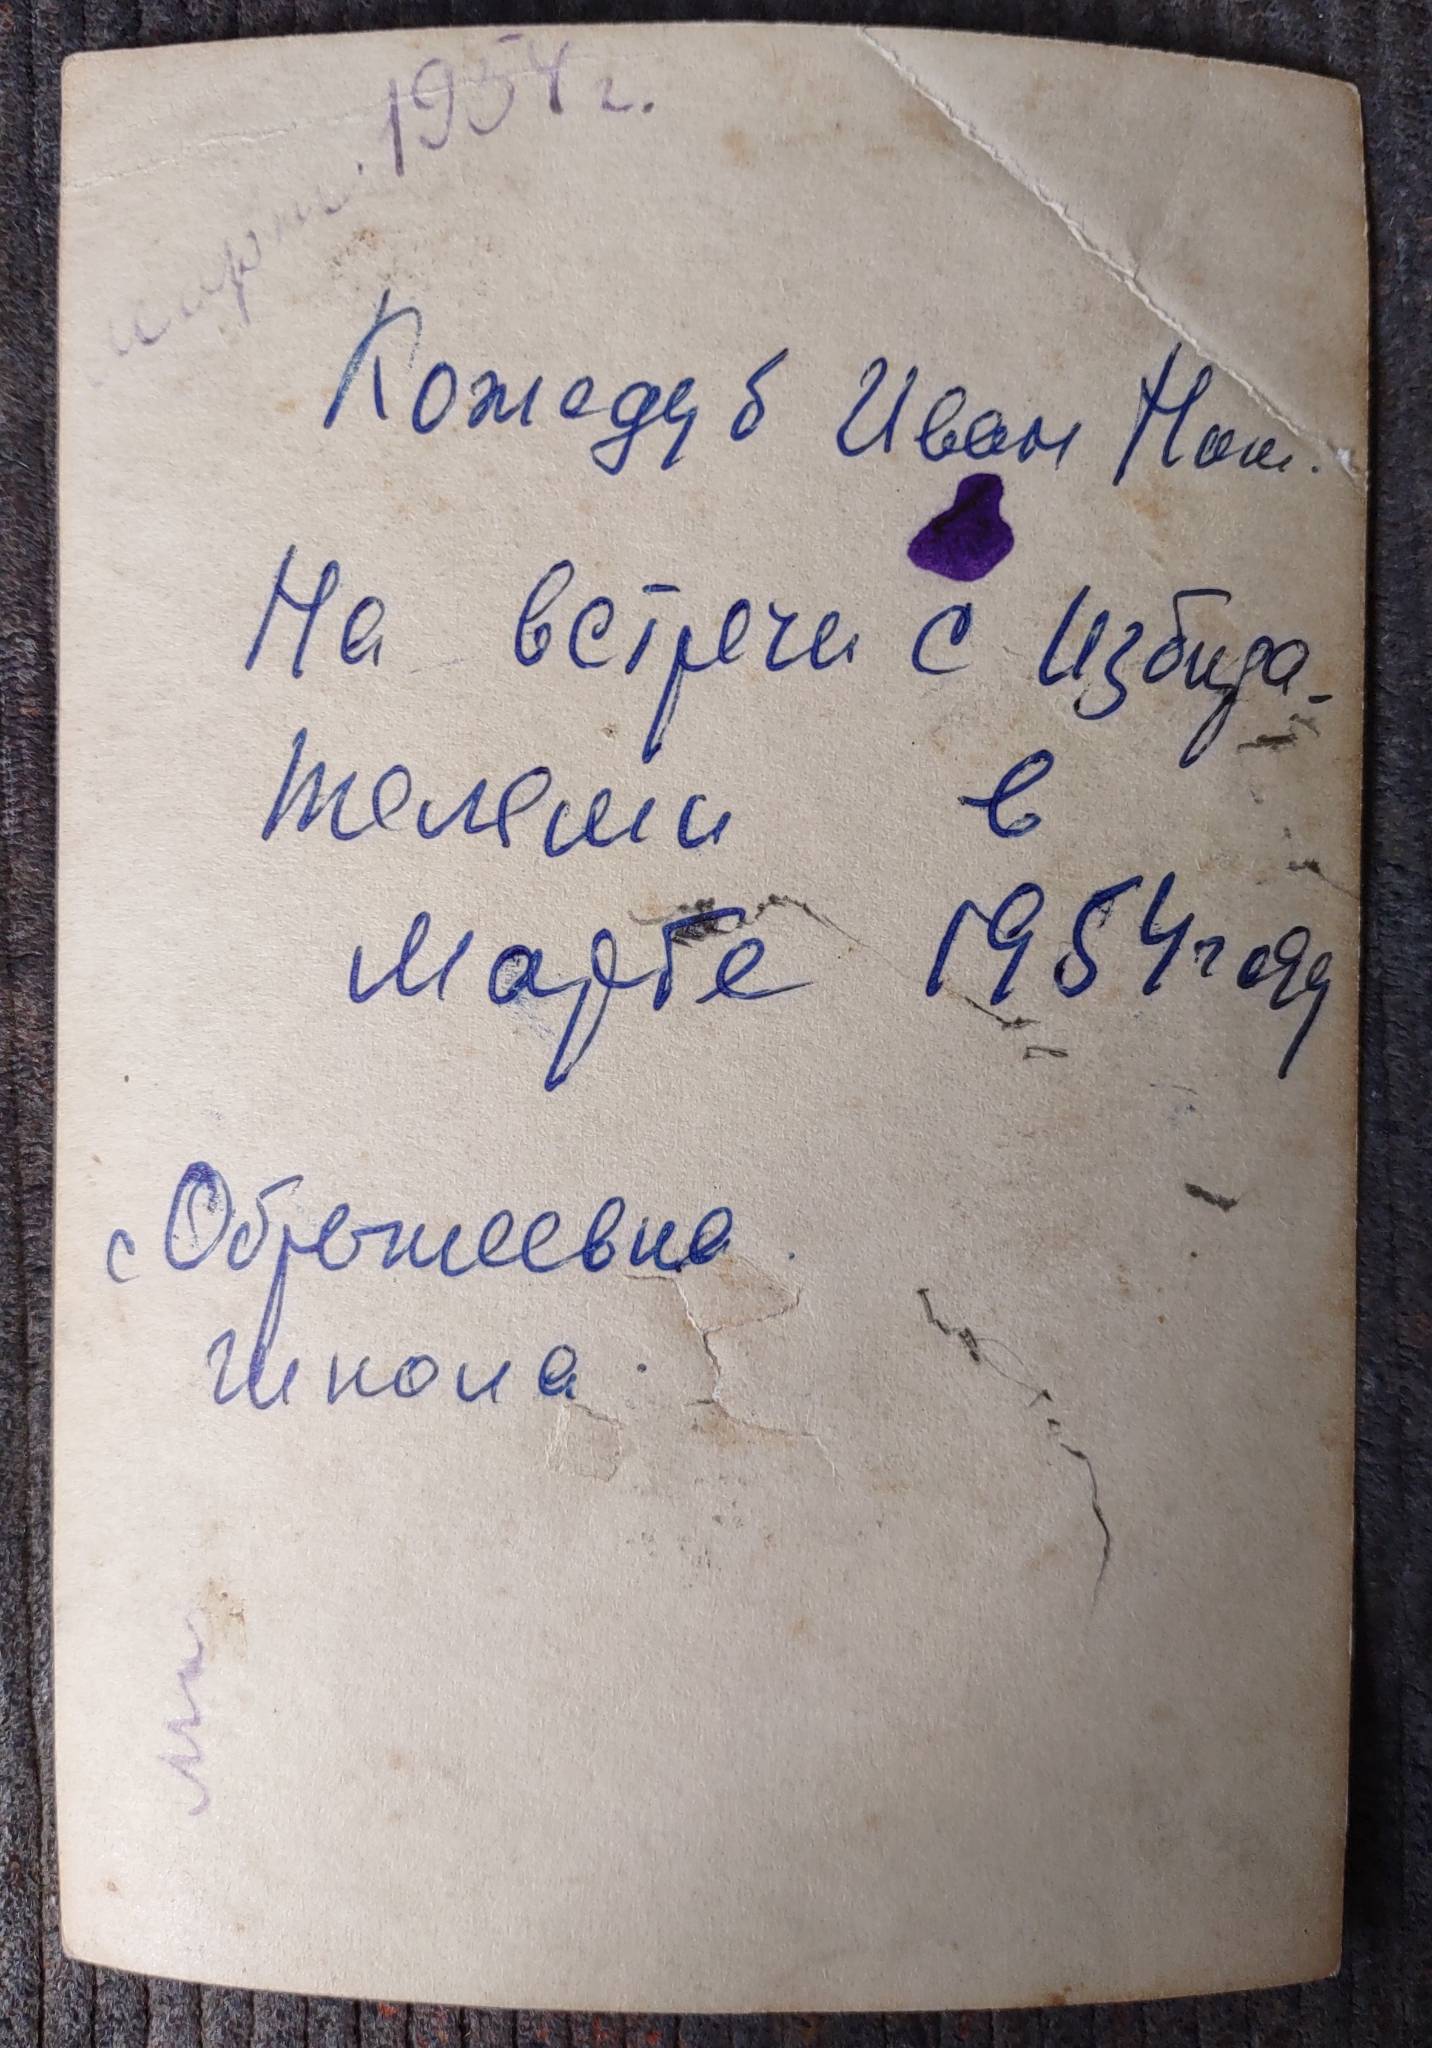 март. 1954 г.
Кожедуб Иван Ник.
На встречи с Избира-
телями в
марте 1954 году
с Обрежеевка.
школа.